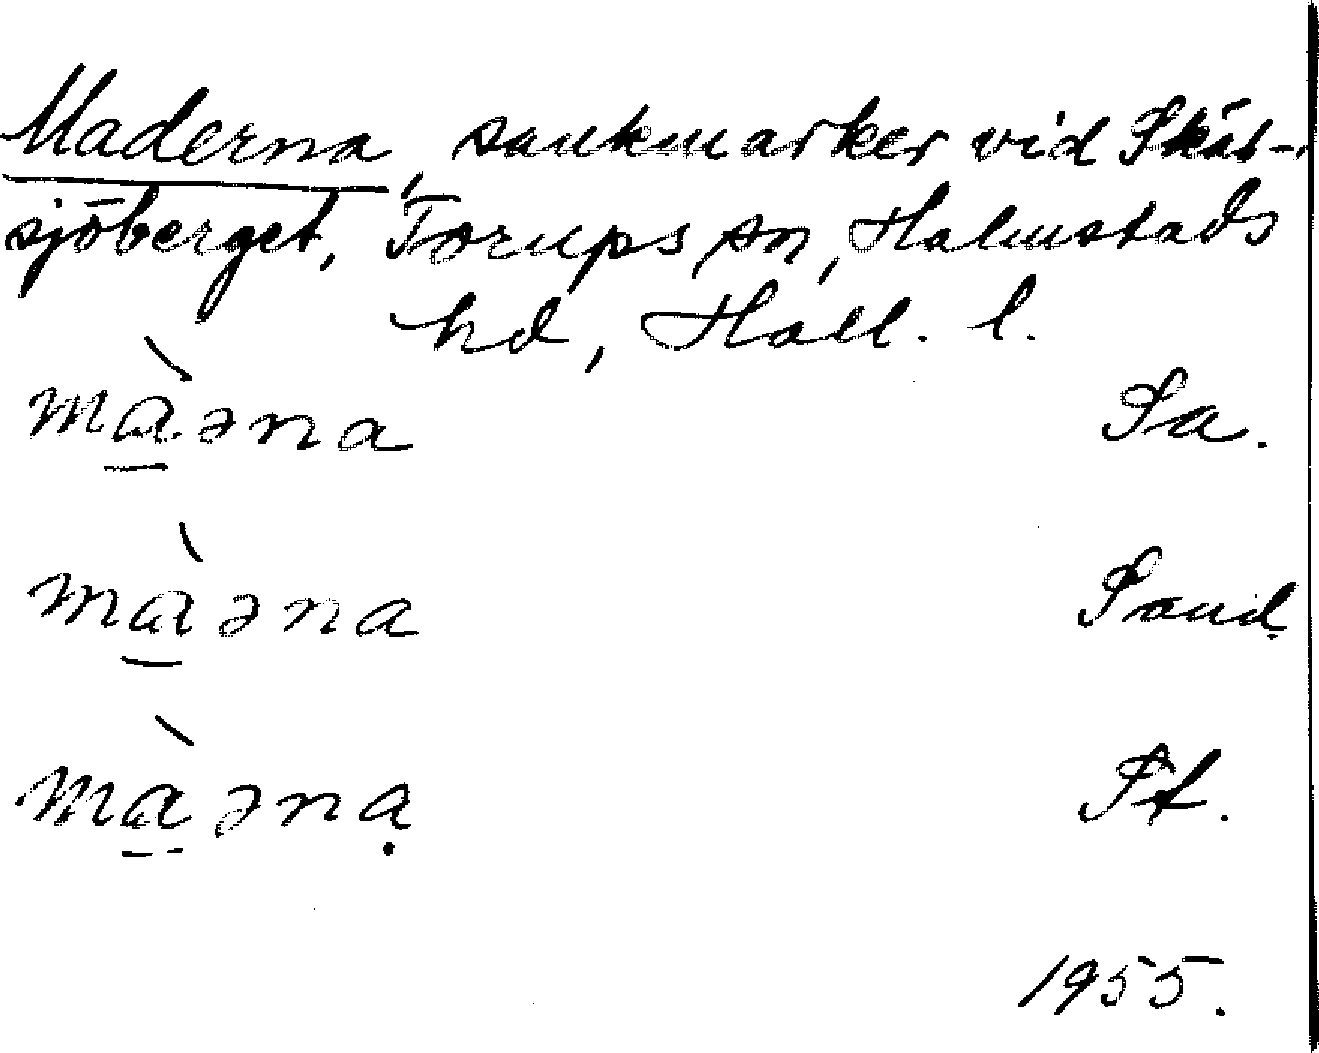 Maderna, sankmarker vid Skäs-
sjöberget, Torups sn, Halmstads
hd, Hall. l.
mà̱əna Sa.
mà̱əna Sand.
mà̱ənạ St.
1955.